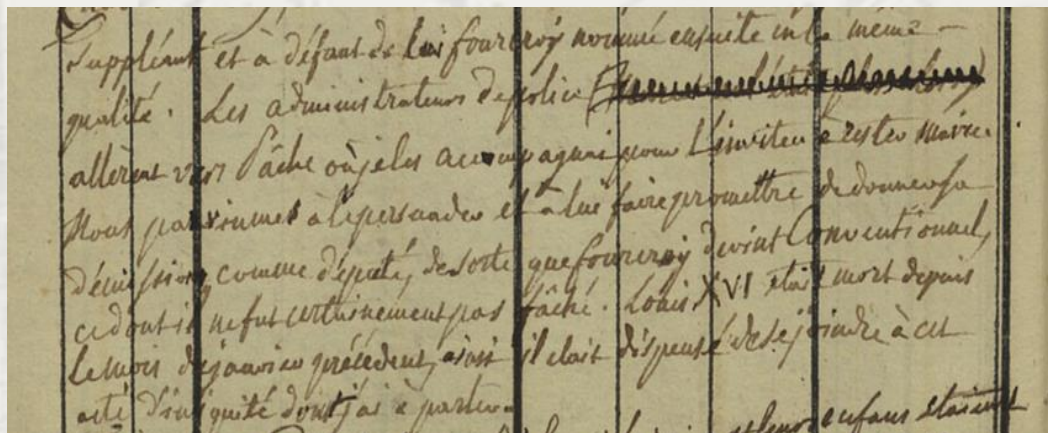 Suppléant et à défaut de lui fourcroy nommé ensuite en la même
qualité. Les administrateurs de police
allèrent vers Pâche où je les accompagnai pour l'inviter à rester Maire.
Nous parvinmes à le persuader et à lui faire promettre de donner sa
démission comme député, de sorte que fourcroy devint Conventionnel,
ce dont il ne fut certainement pas fâché. Louis XVI était mort depuis
le mois de janvier précédent, ainsi il était dispensé de se joindre à cet
acte d'iniquité dont j'ai à parler
enfans étaient